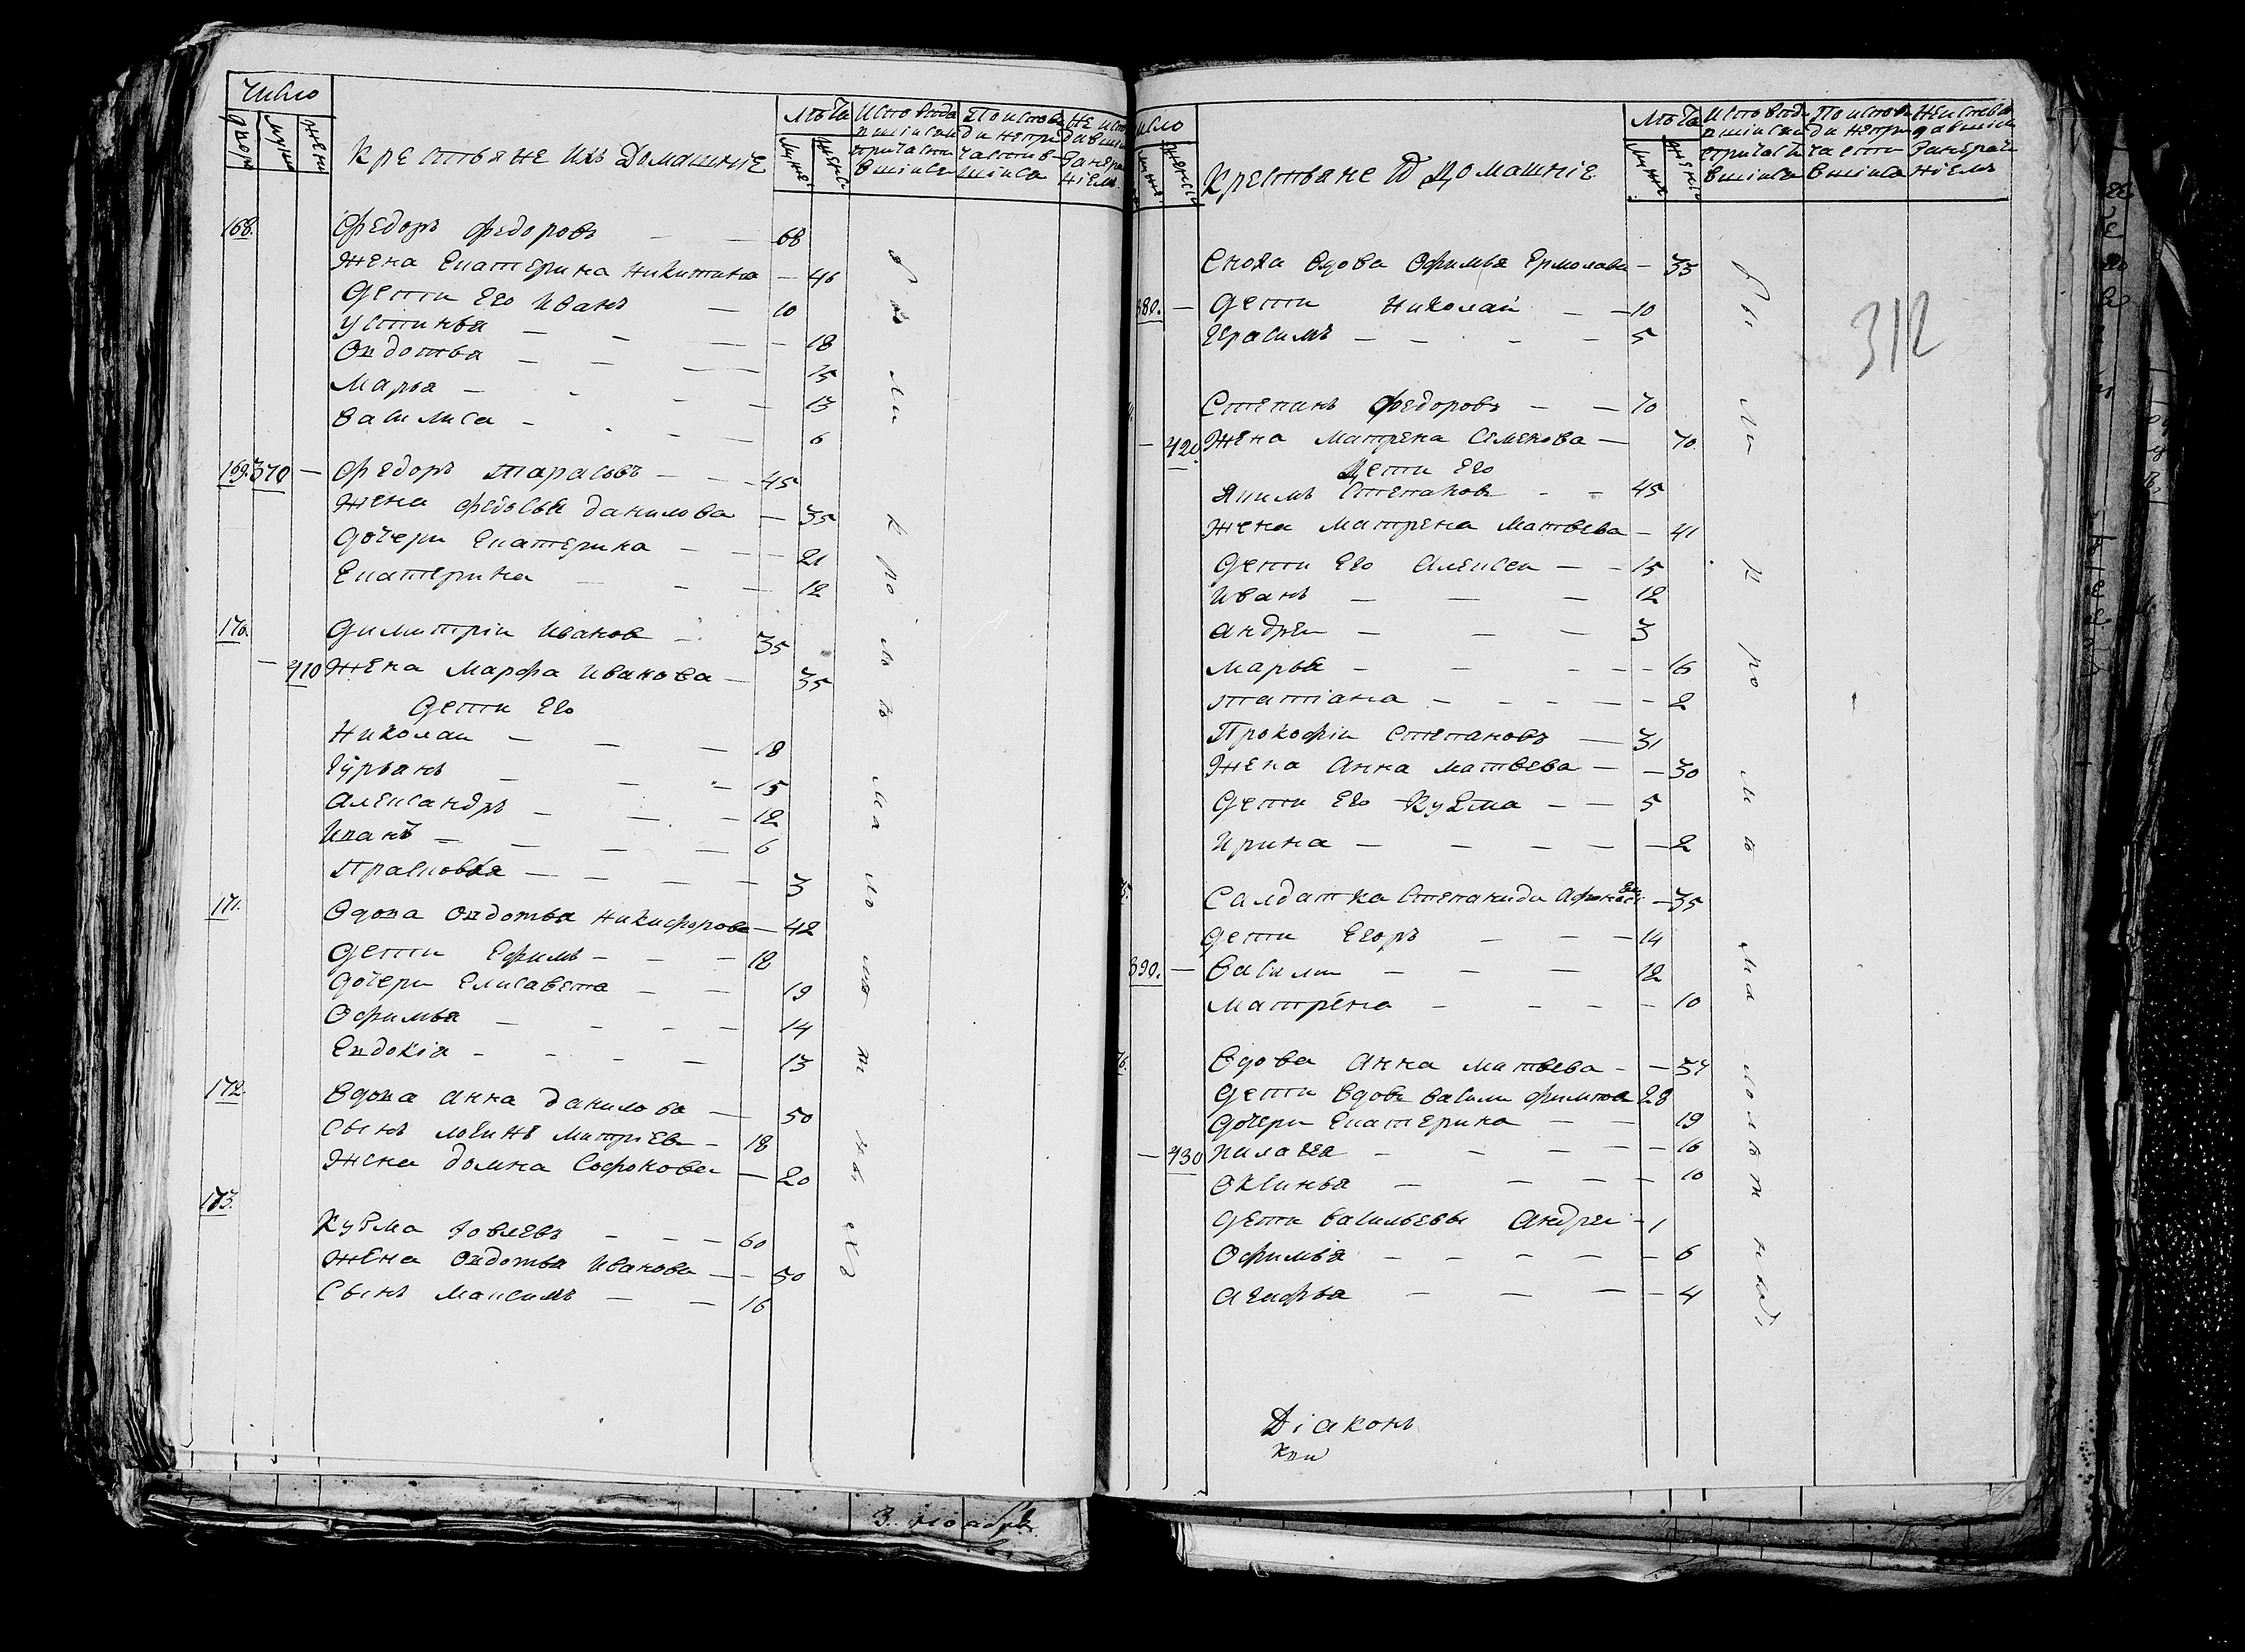 Число
двор
муж
жен
Крестьяне ихъ Домашніе
Лѣта
муж
женс
Исповѣда
вшіися
причасти
вшіися
По испове
ди непри
частив
шіися
Не испо
давшіи
за нерад
ніемъ
168. Федоръ Федоровъ — — 68
Жена Екатерина Никитина — 46
Дети Его Иванъ — 10
Устинья — — — — 18
Овдотья — — — — 15
Марья — - - — 13
Василиса — - - — 6
169. 370 — Федоръ Тарасовъ — — - 45
Жена Федосья Данилова — 35
Дочери Екатерина — — — 21
Екатерина — - — 12
170. Димитріи Иванов — 35
— 410 Жена Марфа Иванова — 35
Дети Его
Николаи — — — 18
Гурьянъ — — - 15
Александръ — — - 12
Иванъ — — — — 6
Прасковья — — — — 3
171. Вдова Овдотья Никифорова — 42
Дети Ефимъ — — — 12
Дочери Елисавета — — 19
Офимья — - - — 14
Евдокіа - - - — 13
172. Вдова Анна Данилова — 50
Сынъ Логинъ Митріев — 18
Жена Домна Софонова — 20
173.
Кузма Іовлевъ — — — 60
Жена Овдотья Иванова — — 50
Сынъ Максимъ — — 16
были
кромѣ
малолѣтныхъ
3. ноабря
исло
муж
женс
Крестьяне И Домашніе
Лѣта
муж
женс
Исповѣд
вшіися
причасти
вшіися
По испов
ди непри
части
вшіися
Неиспове
давшіи
занерад
ніемъ
312
Сноха вдова Офимья Ермолаева — 33
380. — Дети Николаи — — 10
Герасимъ — — - — 5
Степанъ Федоровъ — — 70
— 420. Жена Матрена Семенова — 70
Дети Его
Якимъ Степановъ - — 45
Жена Матрена Матвеева — 41
Дети Его Алексеи — — 15
Иванъ — — — 12
Андреи — — — 3
Марья — — — — 16
Татіана — - - — — 2
Прокофіи Степановъ — 31
Жена Анна Матвеева — — 30
Дети Его Кузма — — 5
Ирина — — — — — 2
Салдатка Степанида Афонасева — 35
Дети Егоръ — — — 14
390. — Васили — — — 12
Матрена — - — — 10
Вдова Анна Матвеева - — 37
Дети Вдове Васили Филипов 28
Дочери Екатерина — — 19
— 430 Пилагея — - — — 16
Оксинья — — — — 10
Дети Васильевы Андреи — 1
Офимья — — — — — 6
Агафья — — — — 4
были
кромѣ
малолѣтныхъ
Діаконъ